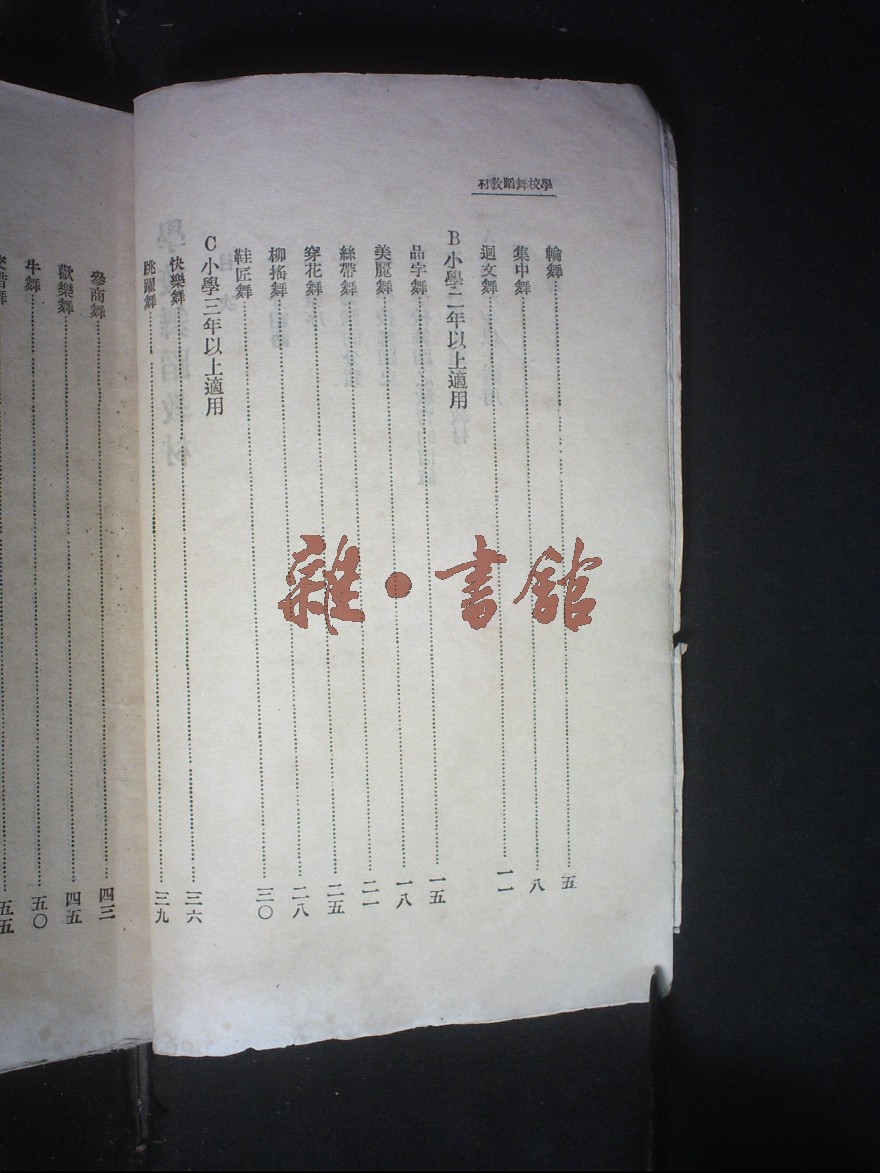 學校舞蹈教材
輪舞 五
集中舞 八
迴文舞 一一
B 小學二年以上適用
品字舞 一五
美麗舞 一八
絲帶舞 二一
穿花舞 二五
柳搖舞 二八
鞋匠舞 三〇
C 小學三年以上適用
快樂舞 三六
跳躍舞 三九
參商舞 四三
歡樂舞 四五
牛舞 五〇
五五
雜·書館